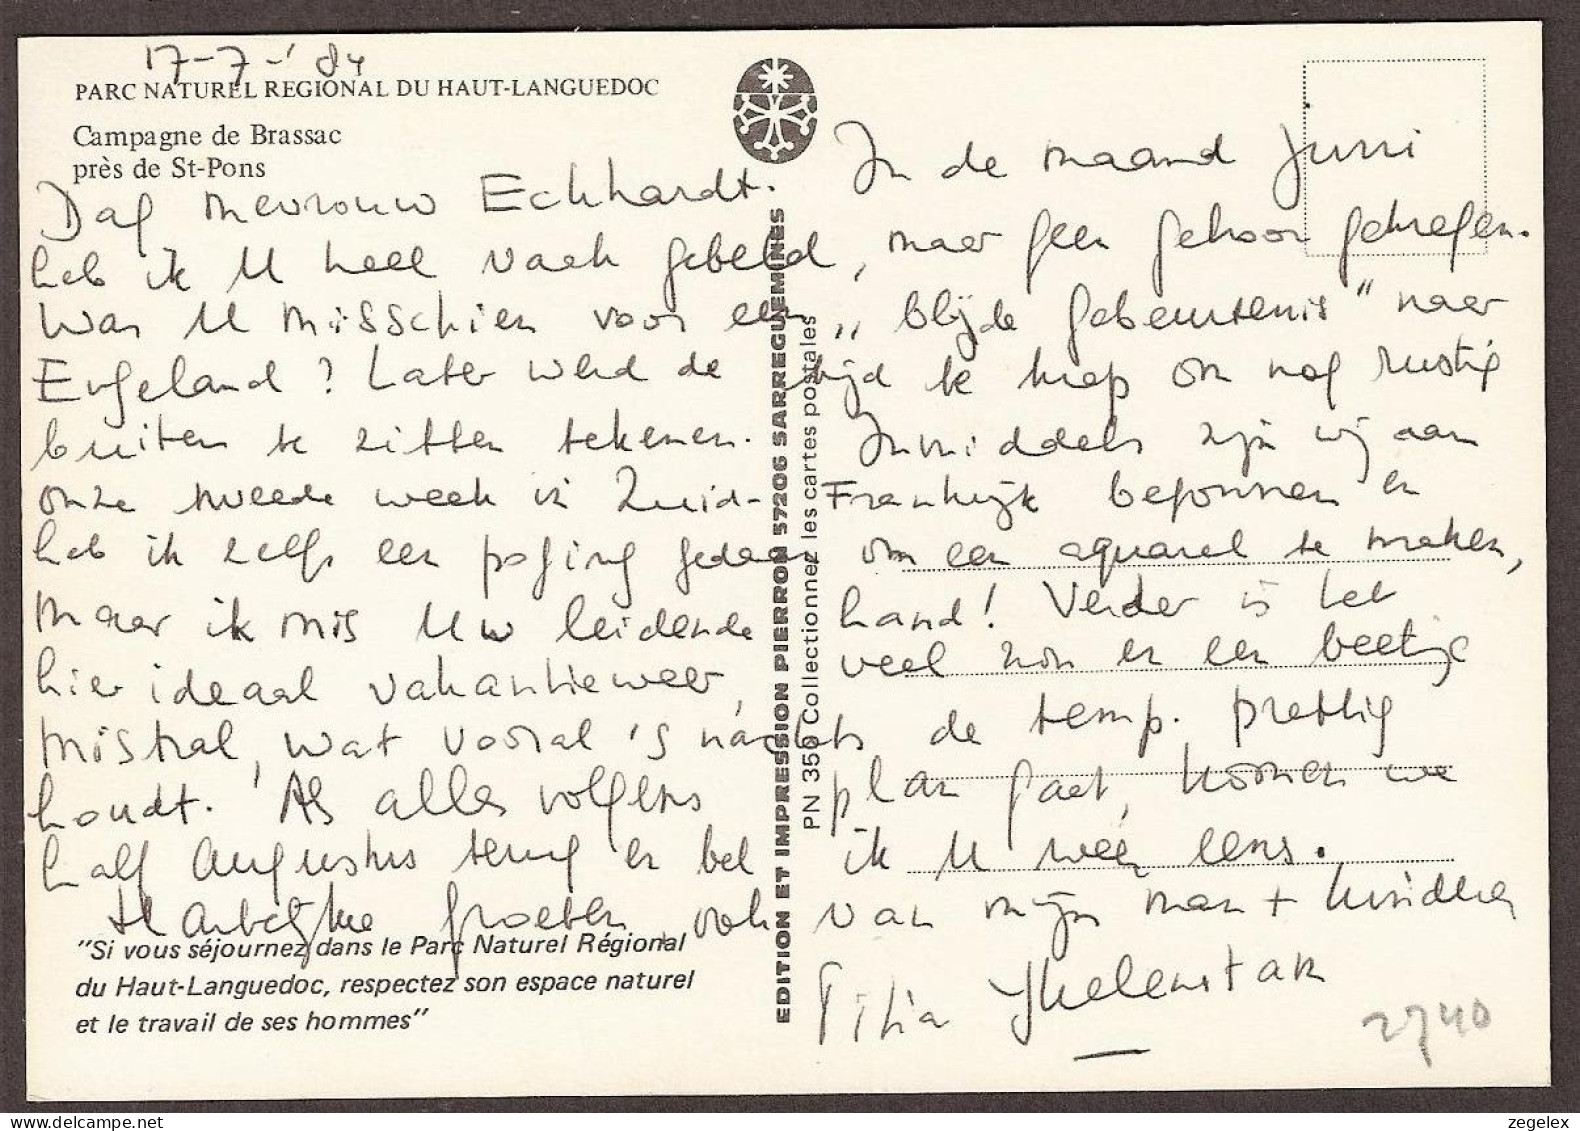 17-7-'84
PARC NATUREL REGIONAL DU HAUT-LANGUEDOC
Campagne de Brassac
près de St-Pons
Dag mevrouw Eckhardt. In de maand Juni
heb ik U heel vaak gebeld, maar geen gehoor gekregen.
Was U misschien voor een „blijde gebeurtenis" naar
Engeland? Later werd de tijd te krap om nog rustig
buiten te zitten tekenen. Inmiddels zijn wij aan
onze tweede week in Zuid-Frankrijk begonnen en
heb ik zelfs een poging gedaan om een aquarel te maken,
maar ik mis Uw leidende hand! Verder is het
hier ideaal vakantieweer, veel zon en een beetje
mistral, wat vooral 's nachts de temp. prettig
houdt. Als alles volgens plan gaat, komen we
half Augustus terug en bel ik U weer eens.
Hartelijke groeten, ook van mijn man + kinderen
"Si vous séjournez dans le Parc Naturel Régional
du Haut-Languedoc, respectez son espace naturel
et le travail de ses hommes"
EDITION ET IMPRESSION PIERRON 57206 SARREGUEMINES
PN 350 Collectionnez les cartes postales
2740
zegelex